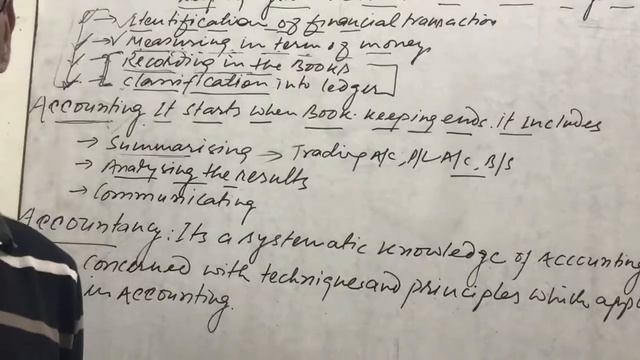 → Identification of financial transaction
→ Measuring in term of money
→ Recording in the Books
→ classification into ledger
Accounting It starts when Book-keeping ends. it Includes
→ Summarising → Trading A/c, P/L A/c, B/S
→ Analysing the results
→ Communicating
Accountancy: Its a systematic knowledge of Accounting
Concerned with techniques and principles which
in Accounting.